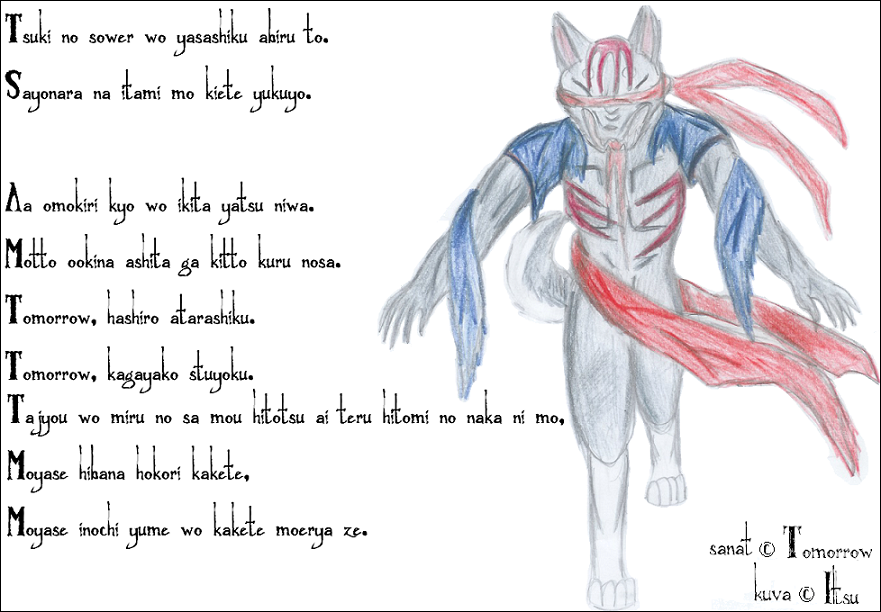 Tsuki no sower wo yasashiku abiru to.
Sayonara na itami mo kiete yukuyo.
Aa omokiri kyo wo ikita yatsu niwa.
Motto ookina ashita ga kitto kuru nosa.
Tomorrow, hashiro atarashiku.
Tomorrow, kagayako stuyoku.
Tajyou wo miru no sa mou hitotsu ai teru hitomi no naka ni mo,
Moyase hibana hokori kakete,
Moyase inochi yume wo kakete moerya ze.
sanat © Tomorrow
kuva © Itsu